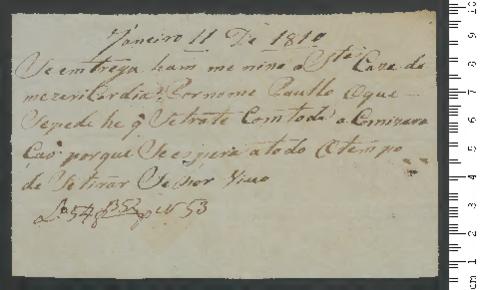 Janeiro 11 De 1810
Se entrega hum me nino a Sta Caza da
mezeri Cordia Por nome Paullo Oque
Sepede he q Setrate Com toda a Comizara
Cao porque Se espera atodo Otempo
de Setirar Se for Vivo
Lo 54 f 352 No 53